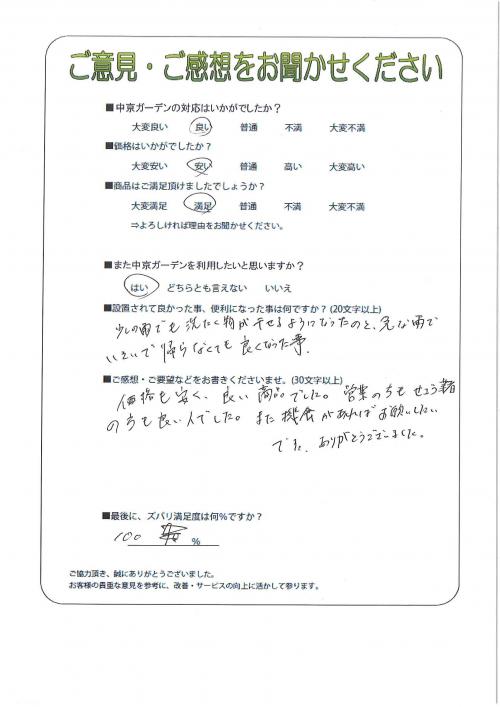 ご意見・ご感想をお聞かせください
■中京ガーデンの対応はいかがでしたか？
大変良い 良い 普通 不満 大変不満
■価格はいかがでしたか？
大変安い 安い 普通 高い 大変高い
■商品はご満足頂けましたでしょうか？
大変満足 満足 普通 不満 大変不満
⇒よろしければ理由をお聞かせください。
■また中京ガーデンを利用したいと思いますか？
はい どちらとも言えない いいえ
■設置されて良かった事、便利になった事は何ですか？(20文字以上)
少しの雨でも洗たく物が干せるようになったのと、急な雨で
いそいで帰らなくても良くなった事.
■ご感想・ご要望などをお書きくださいませ。(30文字以上)
価格も安く、良い商品でした。営業の方もせこう業者
の方も良い人でした。また機会があればお願いしたい
です。ありがとうございました。
■最後に、ズバリ満足度は何％ですか？
100 %
ご協力頂き、誠にありがとうございました。
お客様の貴重な意見を参考に、改善・サービスの向上に活かして参ります。